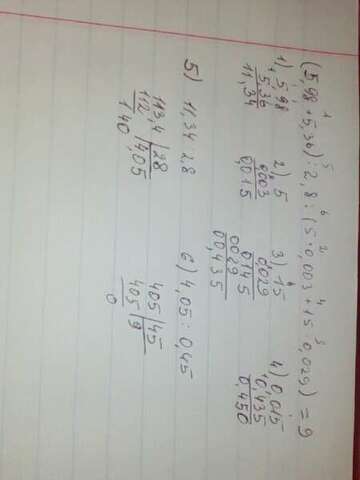 1 5 6 2 4 3
(5,98 + 5,36) : 2,8 : (5 · 0,003 + 15 · 0,029) = 9
1) 5,98
+ 5,36
11,34
2) 5
0,003
0,015
3) 15
0,029
0,145
0029
00,435
4) 0,015
0,435
0,450
5) 11,34 : 2,8
113,4 | 28
112 | 4,05
140
6) 4,05 : 0,45
405 | 45
405 | 9
0